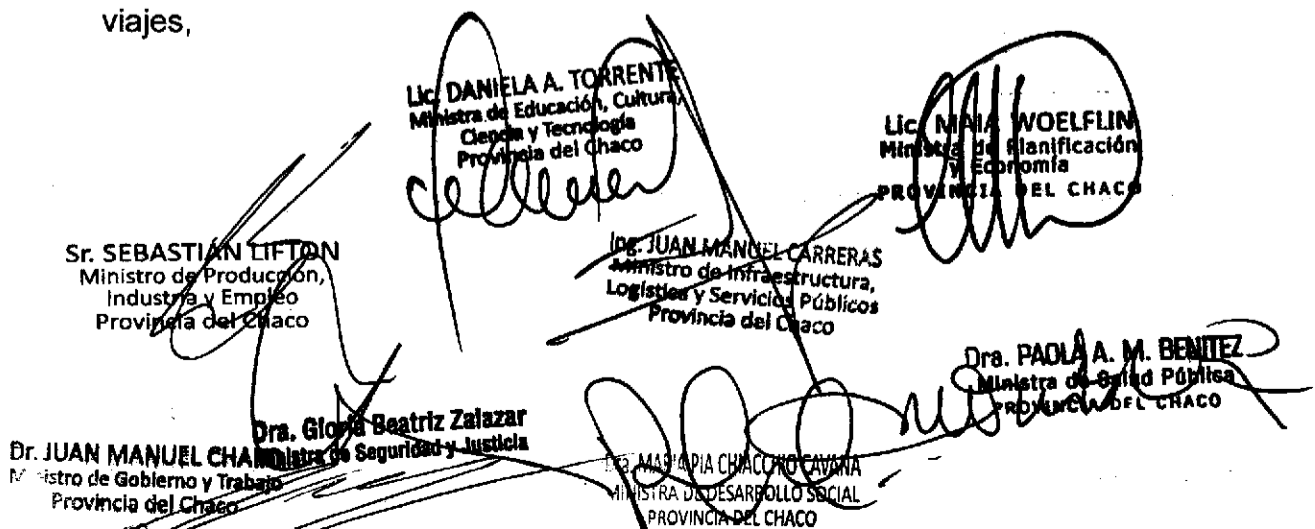 viajes,
Lic. DANIELA A. TORRENTE
Ministra de Educación, Cultura,
Ciencia y Tecnología
Provincia del Chaco
Lic. MAIA WOELFLIN
Ministra de Planificación
y Economía
PROVINCIA DEL CHACO
Sr. SEBASTIÁN LIFTON
Ministro de Producción,
Industria y Empleo
Provincia del Chaco
Ing. JUAN MANUEL CARRERAS
Ministro de Infraestructura,
Logística y Servicios Públicos
Provincia del Chaco
Dra. PAOLA A. M. BENITEZ
Ministra de Salud Pública
PROVINCIA DEL CHACO
Dra. Gloria Beatriz Zalazar
Ministra de Seguridad y Justicia
Dr. JUAN MANUEL
Ministro de Gobierno y Trabajo
Provincia del Chaco
Dra. MARIA PIA CHIACCHIO CAVANA
MINISTRA DE DESARROLLO SOCIAL
PROVINCIA DEL CHACO